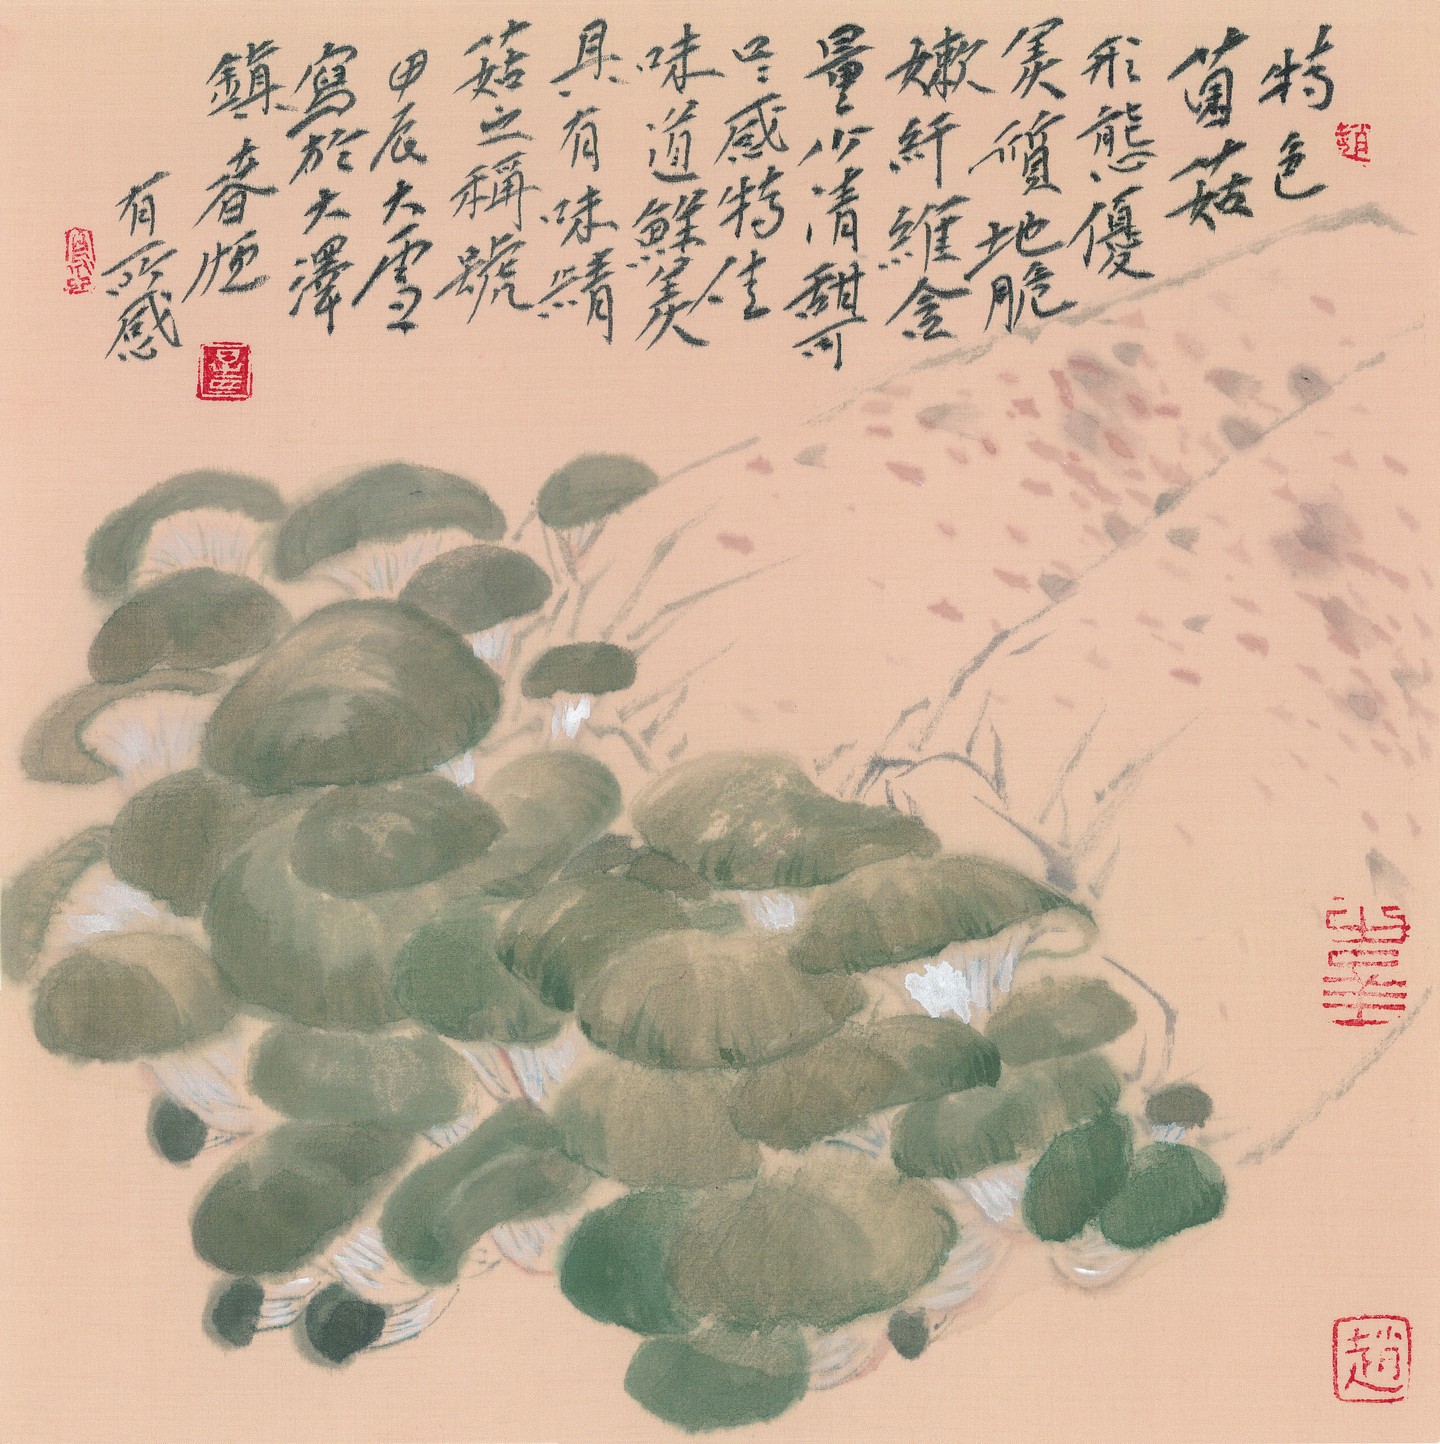 特色
菌菇
形態優
美質地脆
嫩纖維含
量少清甜可
口口感特佳
味道鮮美
具有味精
菇之稱號
甲辰大雪
寫於大澤
鎮春恒
有所感
趙
趙